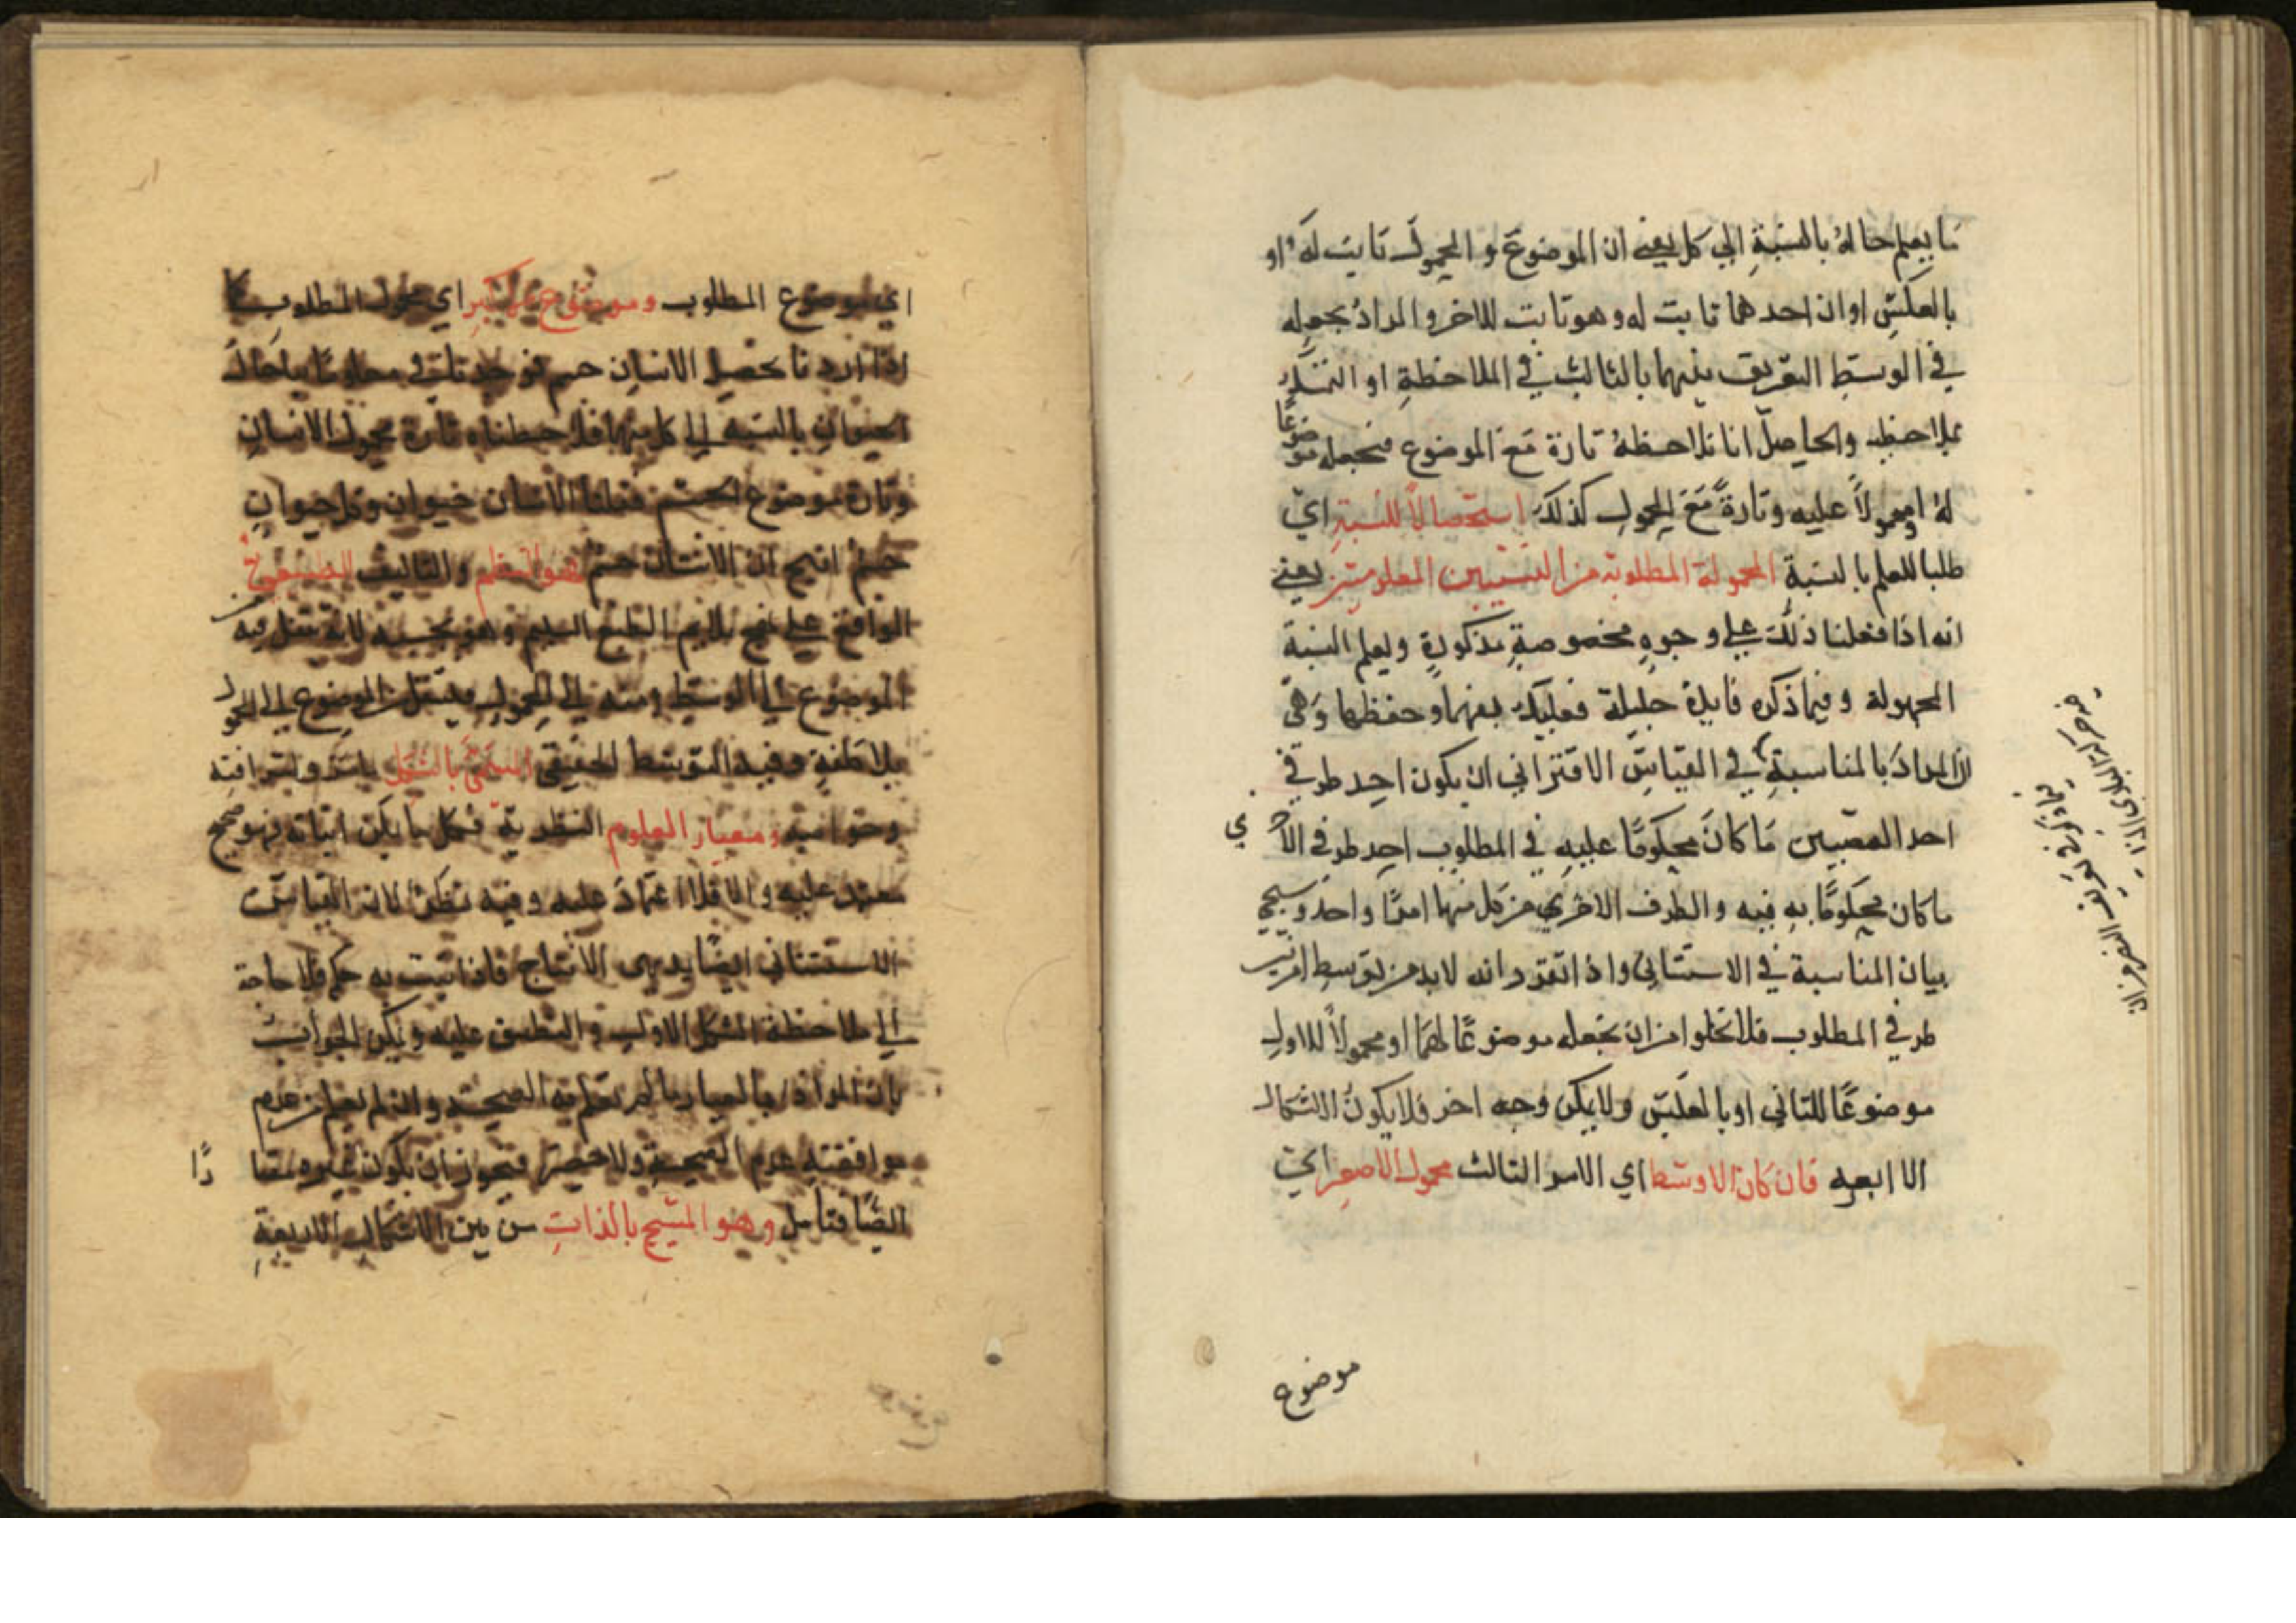 ما يعلم حاله بالنسبةِ الي كل يعني ان الموضوعَ و المحمولَ ثابت له او
بالعكسِ او ان احدهما ثابت له وهو ثابت للاخر والمرادُ بجعلِه
في الوسَطِ التفريق بينهما بالثالث في الملاحظةِ او
والحاصل انا نلاحظهُ تارة مَعَ الموضوع فنجعله موضوعًا
لهُ او محمولاً عليه وتارةً مَعَ المحمولِ كذلكَ استحصالاً للنسبةِ اي
طلبا للعلم بالنسبة المجهولة المطلوبة من النسبتين المعلومتين يعني
انه اذا فعلنا ذلك علي وجوهٍ مخصوصةٍ مذكورةٍ ويعلم النسبة
المجهولة وفيما ذكره فايدة جليلة فعليك بفهما وحفظها وَهيَ
ان المرادَ بالمناسبةِ في القياسِ الاقتراني ان يكون احد طرفي
احد مَا كانَ محكومًا عليهِ في المطلوب احد طرفي الاخري
ما كان محكومًا بهِ فيه والطرف الاخري من كل منهما امرًا واحد وسيجي
بيان المناسبة في الاستثنائي واذا تقرر انه لابد من توسط امر بين
طرفي المطلوب فلا تخلوا من ان تجعله موضوعًا لهمَا او محمولاً للاولِ
موضوعًا للثاني او بالعكسِ ولا يمكن وجه اخر فلا يكونُ الاشكال
الا اربعه فان كان الاوسط اي الامر الثالث محمول الاصغرِ اي
موضوع
اي موضوع المطلوب وموضوع الاكبرِ اي محمول المطلوبِ كما
اذا اردنا تحصيل الانسانِ جسم
الحيوانِ بالنسبه الي كل منهما فلاحظناه تارة محمول الانسانِ
وتارة موضوع الجسم فقلنا الانسان حيوان وكل حيوانٍ
جسمٌ انتج ان الانسان جسمٌ فهو النظم والتاليف الطبيعيُّ
الواقع علي نهج يلايم الطبع السليم وهو بحسبه لانه تنتقل فيه
الموضوع الي الوسَطِ ومنه الي المحمولِ فينتقل من الموضوع الي المحمولِ
بلا وفيه التوسط الحقيقي
ومعيار العلوم النظرية فكل ما يمكن اثباته فهو صحيح
معتمد عليه والا فلا اعتمادَ عليه وفيه نظرٌ لان القياسَ
الاستثنائي ايضًا بديهي الانتاج فاذا ثبت به حكم فلا حاجة
الي ملاحظة الشكل الاولِ والتطبيق عليه ويمكن الجواب
بان المراد بالمعيار ما لم تعلم به الصحة وان لم يعلم من عدم
موافقته عدم الصحةِ ولا فيجوز ان يكون غيره معيارًا
ايضًا فتامل وهو المنتج بالذاتِ من بين الاشكالِ الاربعةِ